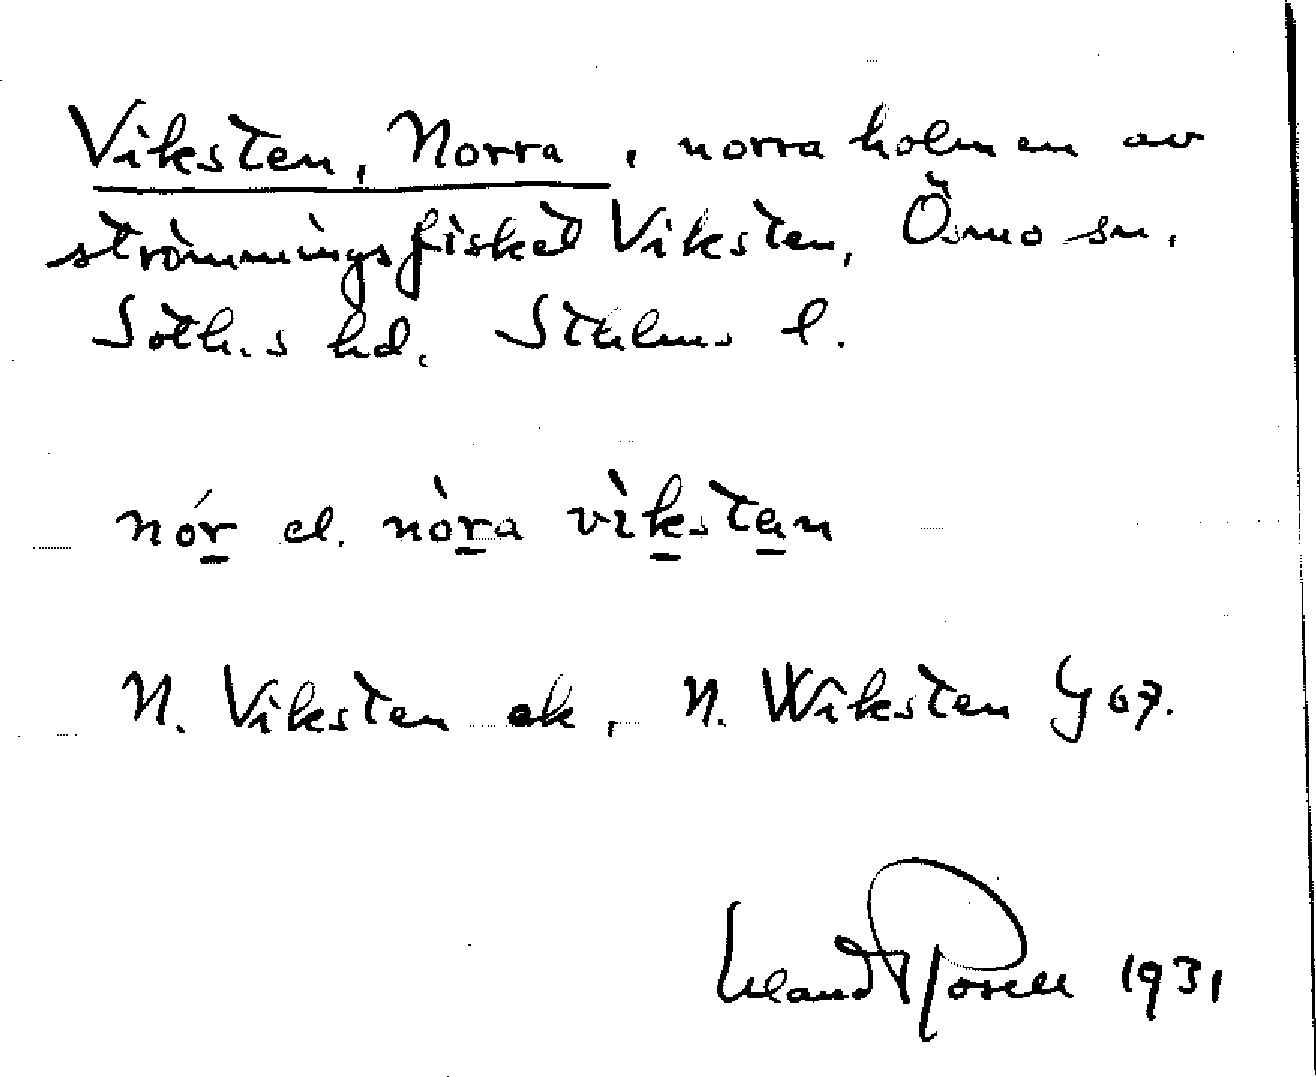 Viksten, Norra, norra holmen av
strömmingsfisket Viksten, Ösmo sn.
Soth.s hd. Sthlms l.
nór el. nòra vìksten
N. Viksten ek, N. Wiksten J 07.
1931